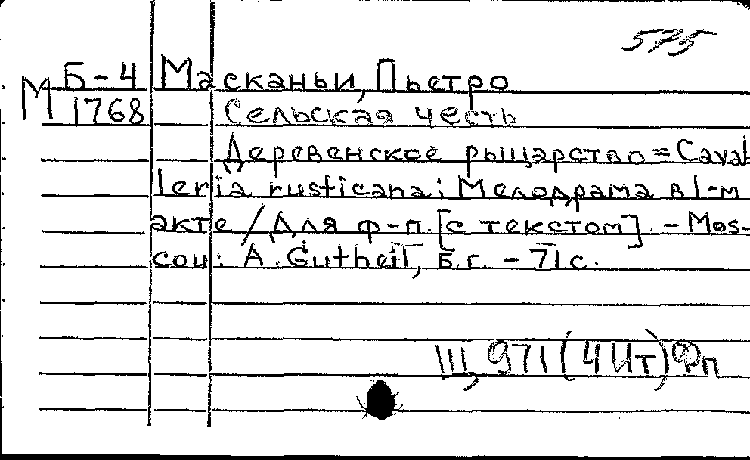 575
Б-4 Масканьи, Пьетро
М 1768 Сельская честь
Деревенское рыцарство = Caval
leria rusticana: Мелодрама в 1-м
акте / Для ф-п. [с текстом]. - Mos-
cou: A. Gutheil, б.г. - 71 с.
Щ, 971(4Ит)Фп